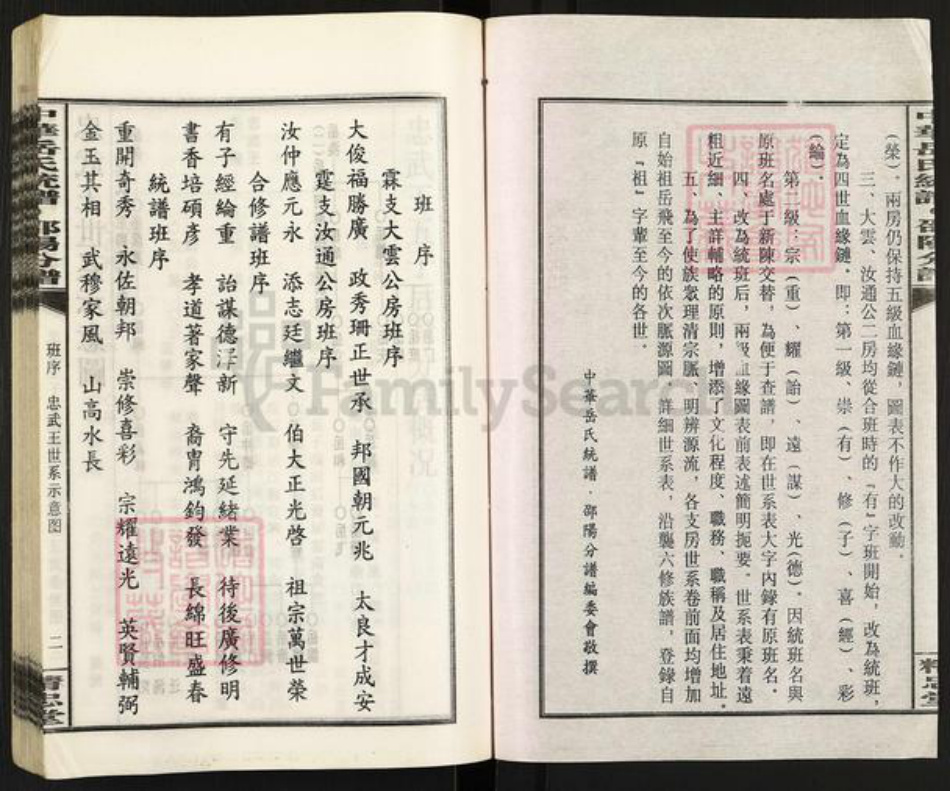 中華岳氏統譜·邵陽分譜
(榮)．兩房仍保持五級血緣鏈，圖表不作大的改動．
三、大雲、汝通公二房均從合班時的『有』字班開始，改為統班，
定為四世血緣鏈．即：第一級、崇(有)、修(子)、喜(經)、彩
(綸)．
第二級：宗(重)、耀(詒)、遠(謀)、光(德)．因統班名與
原班名處于新陳交替，為便于查譜，即在世系表大字內錄有原班名．
四、改為統班后，兩級血緣圖表前表述簡明扼要．世系表秉着遠
粗近細、主詳輔略的原則，增添了文化程度、職務、職稱及居住地址．
五、為了使族衆理清宗脈、明辨源流，各支房世系卷前面均增加
自始祖岳飛至今的依次脈源圖．詳細世系表，沿襲六修族譜，登錄自
原『祖』字輩至今的各世．
中華岳氏統譜．邵陽分譜編委會敬撰
精忠堂
班序
霖支大雲公房班序
大俊福勝廣 政秀珊正世承 邦國朝元兆 太良才成安
霆支汝通公房班序
汝仲應元永 添志廷繼文 伯大正光啓 祖宗萬世榮
合修譜班序
有子經綸重 詒謀德澤新 守先延緒業 待後廣修明
書香培碩彥 孝道著家聲 裔冑鴻鈞發 長綿旺盛春
統譜班序
重開奇秀 永佐朝邦 崇修喜彩 宗耀遠光 英賢輔弼
金玉其相 武穆家風 山高水長
中華岳氏統譜·邵陽分譜
班序 忠武王世系示意图
二
精忠堂
FamilySearch